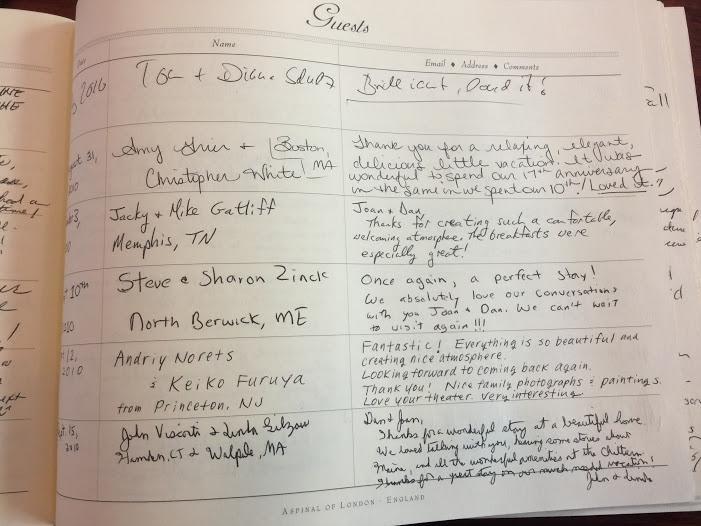 Guests
Name
Email ♦ Address ♦ Comments
2010
Tom + Diane
Brilliant, Dan & J!
all
31,
2010
Amy + Boston,
Christopher White MA
Thank you for a relaxing, elegant,
delicious little vacation. It was
wonderful to spend our 17th anniversary
in the same inn we spent our 10th! Loved it.
Jacky + Mike Gatliff
Memphis, TN
Joan & Dan,
Thanks for creating such a comfortable,
welcoming atmosphere. The breakfasts were
especially great!
10th
Steve & Sharon Zinck
North Berwick, ME
Once again, a perfect stay!
We absolutely love our conversations
with you Joan & Dan. We can't wait
to visit again!!!
12,
2010
Andriy Norets
& Keiko Furuya
from Princeton, NJ
Fantastic! Everything is so beautiful and
creating nice atmosphere.
Looking forward to coming back again.
Thank you! Nice family photographs & paintings.
Love your theater. Very interesting
15,
2010
John Visconti & Linda
Hamden, CT & Walpole, MA
Dan & Joan,
Thanks for a wonderful stay at a beautiful home.
We loved talking with you, hearing some stories about
Maine, and all the wonderful amenities at the Chiltern
Thanks for a great stay on our much needed vacation!
John & Linda
ASPINAL OF LONDON · ENGLAND